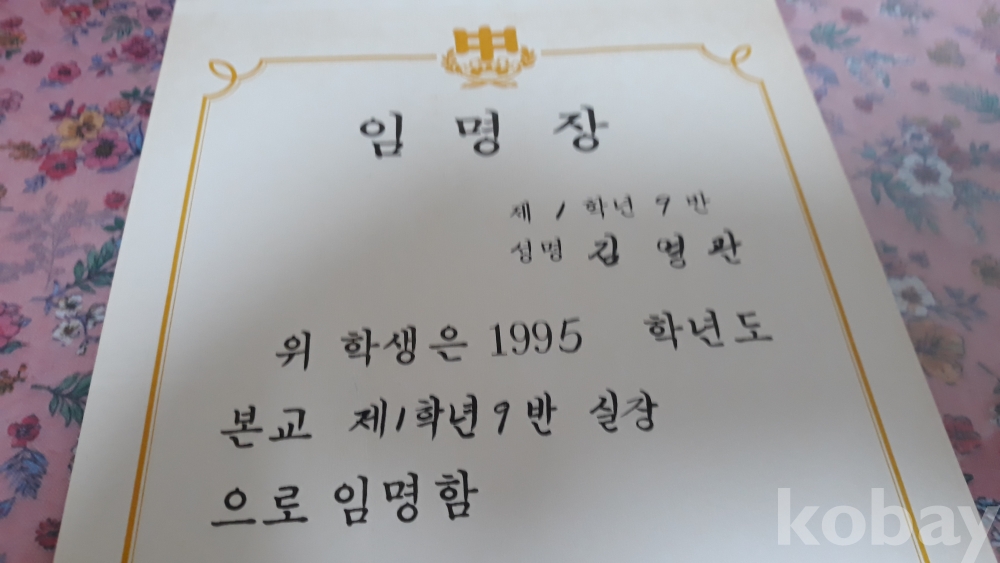 中
임 명 장
제 1 학년 9 반
성명 김 영 관
위 학생은 1995 학년도
본교 제1학년 9 반 실장
으로 임명함
kobay